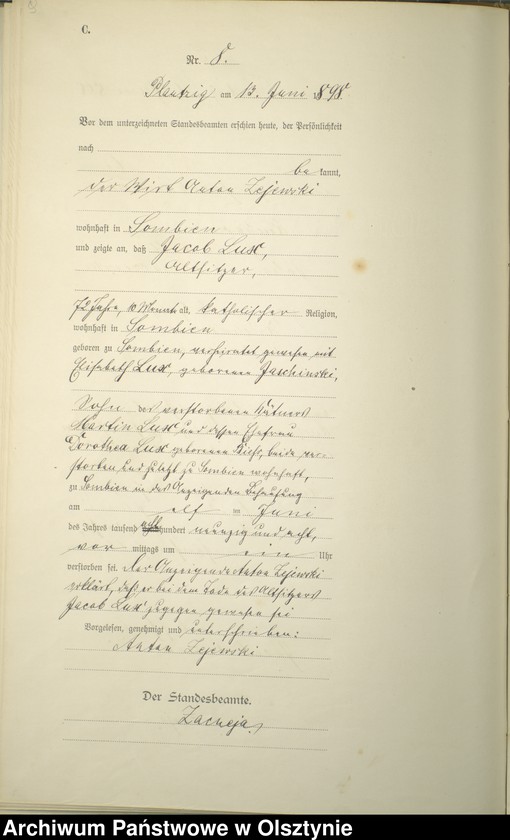 C.
Nr. 8.
Plautzig am 13. Juni 1898.
Vor dem unterzeichneten Standesbeamten erschien heute, der Persönlichkeit
nach
be kannt,
der Wirt Anton Zejewski
wohnhaft in Sombien
und zeigte an, daß Jacob Lux,
Altsitzer,
72 Jahre, 10 Monate alt, katholischer Religion,
wohnhaft in Sombien
geboren zu Sombien, verheiratet gewesen mit
Elisabeth Lux, geborenen Jaschinski,
Sohn des verstorbenen Kätners
Martin Lux und dessen Ehefrau
Dorothea Lux geborenen beide ver-
storben und zuletzt zu Sombien wohnhaft,
zu Sombien in des Anzeigenden Behausung
am elf ten Juni
des Jahres tausend acht hundert neunzig und acht,
vor mittags um ein Uhr
verstorben sei. Der Anzeigende Anton Zejewski
erklärt, daß er bei dem Tode des Altsitzers
Jacob Lux zugegen gewesen sei
Vorgelesen, genehmigt und unterschrieben:
Anton Zejewski
Der Standesbeamte.
Archiwum Państwowe w Olsztynie